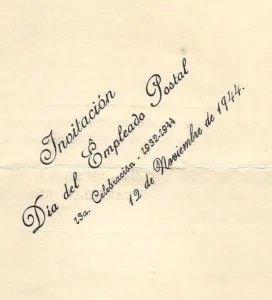 Invitación
Día del Empleado Postal
13a. Celebración - 1932-1944
12 de Noviembre de 1944.